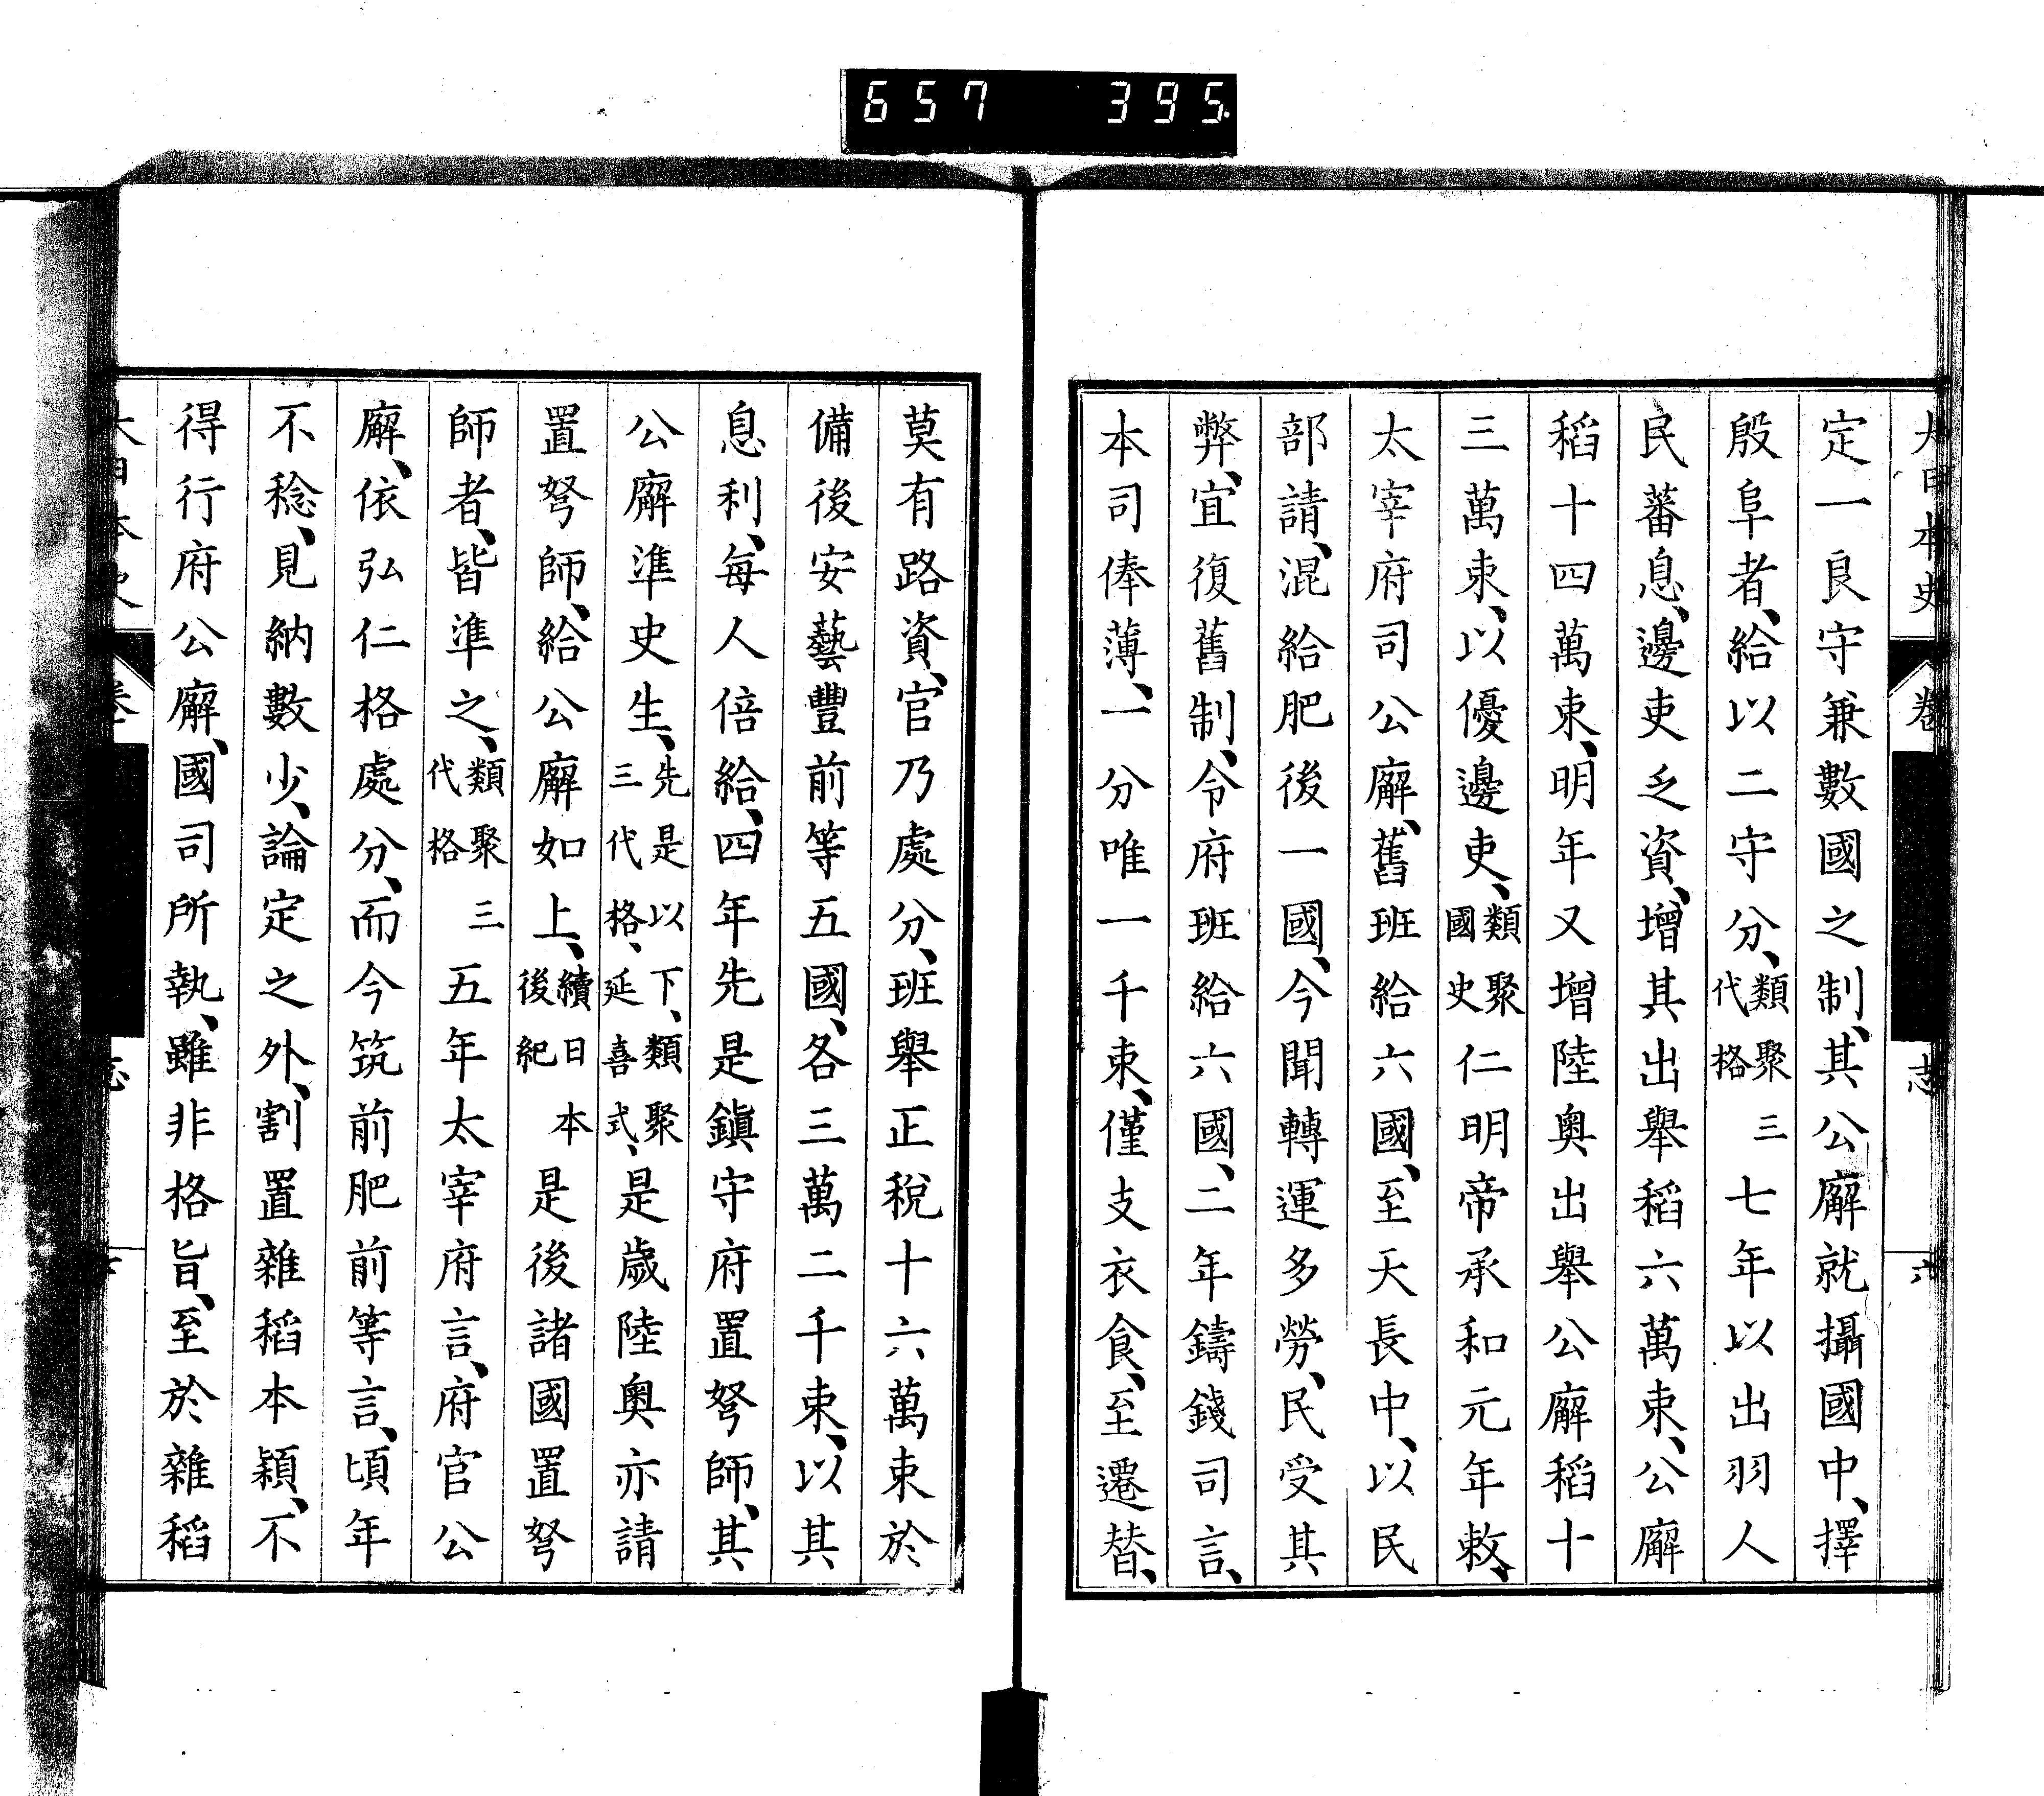 657 395
大日本史 卷 志 六
定一良守兼數國之制、其公廨就攝國中、擇
殷阜者、給以二守分、類聚三代格七年以出羽人
民蕃息、邊吏乏資、增其出舉稻六萬束、公廨
稻十四萬束、明年又增陸奧出舉公廨稻十
三萬束、以優邊吏、類聚國史仁明帝承和元年敕、
太宰府司公廨、舊班給六國、至天長中、以民
部請、混給肥後一國、今聞轉運多勞、民受其
弊、宜復舊制、令府班給六國、二年鑄錢司言、
本司俸薄、一分唯一千束、僅支衣食、至遷替、
莫有路資、官乃處分、班舉正稅十六萬束於
備後安藝豐前等五國、各三萬二千束、以其
息利、每人倍給、四年先是鎭守府置弩師、其
公廨準史生、先是以下、類聚三代格、延喜式、是歲陸奧亦請
置弩師、給公廨如上、續日本後紀是後諸國置弩
師者、皆準之、類聚三代格五年太宰府言、府官公
廨、依弘仁格處分、而今筑前肥前等言、頃年
不稔、見納數少、論定之外、割置雜稻本穎、不
得行府公廨、國司所執、雖非格旨、至於雜稻
大日本史 卷 志